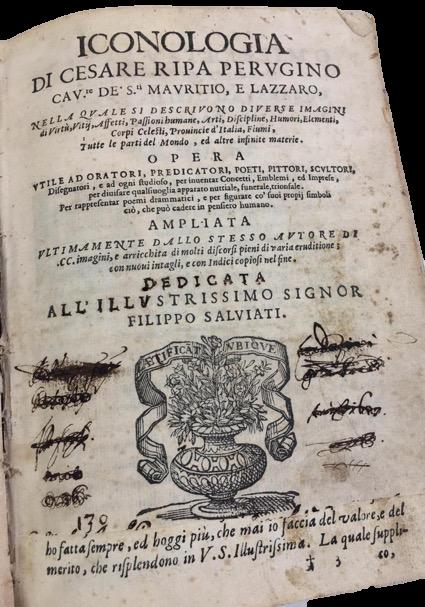 ICONOLOGIA
DI CESARE RIPA PERVGINO
CAV.re DE' S.ti MAVRITIO, E LAZZARO,
NELLA QVALE SI DESCRIVONO DIVERSE IMAGINI
di Virtù, Vitij, Affetti, Passioni humane, Arti, Discipline, Humori, Elementi,
Corpi Celesti, Prouincie d'Italia, Fiumi,
Tutte le parti del Mondo, ed altre infinite materie.
OPERA
VTILE AD ORATORI, PREDICATORI, POETI, PITTORI, SCVLTORI,
Disegnatori, e ad ogni studioso, per inuentar Concetti, Emblemi, ed Imprese,
per diuisare qualsiuoglia apparato nuttiale, funerale, trionfale.
Per rappresentar poemi drammatici, e per figurare co' suoi propij simboli
ciò, che può cadere in pensiero humano.
AMPLIATA
VLTIMAMENTE DALLO STESSO AVTORE DI
.CC. imagini, e arricchita di molti discorsi pieni di varia eruditione;
con nuoui intagli, e con Indici copiosi nel fine.
DEDICATA
ALL' ILLVSTRISSIMO SIGNOR
FILIPPO SALVIATI.
ETIFICAT VBIQVE
139
ho fatta sempre, ed hoggi più, che mai io faccia del valore, e del
merito, che risplendono in V. S. Illustrissima. La quale suppli-
† 3 co,